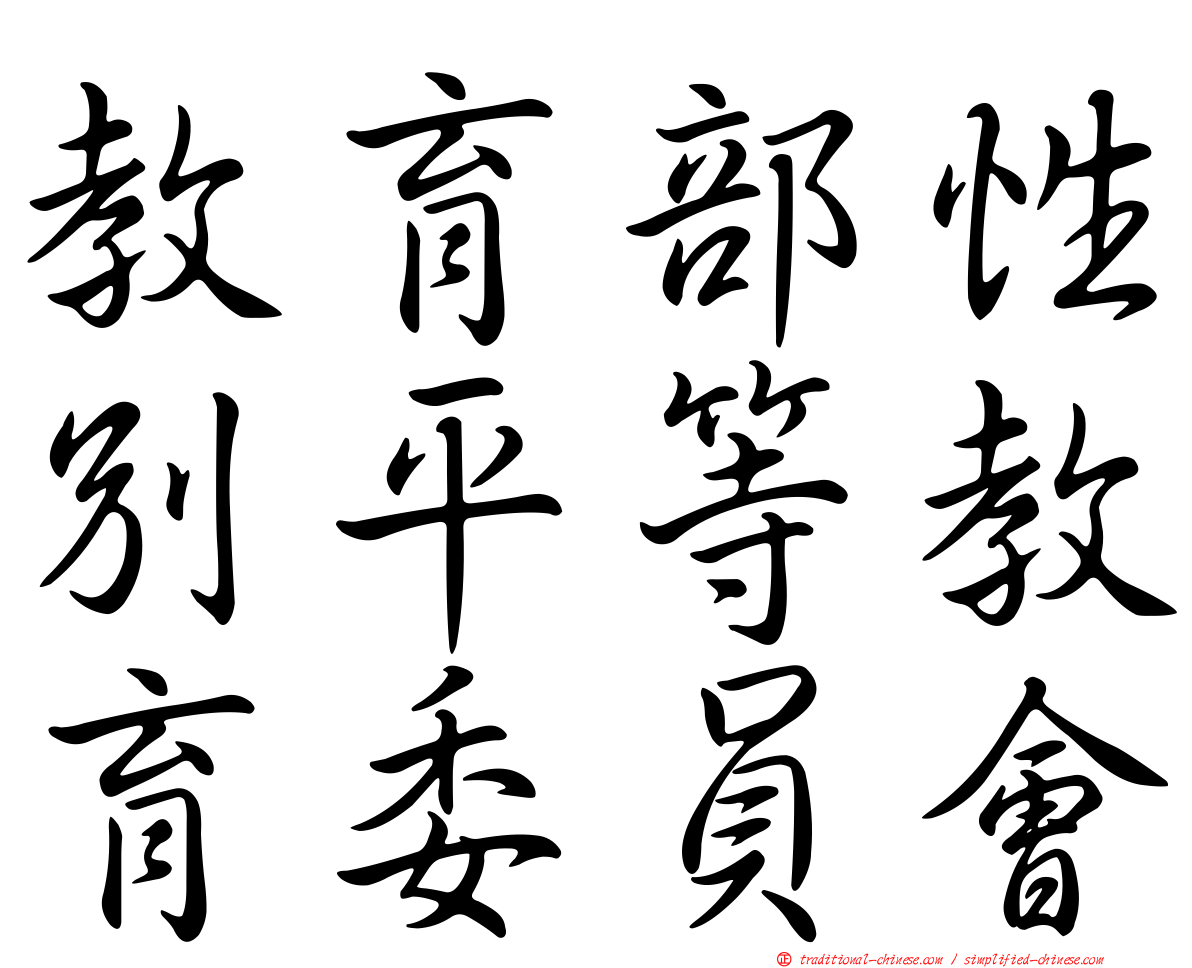 教育部性
別平等教
育委員會
㊣ traditional-chinese.com / simplified-chinese.com